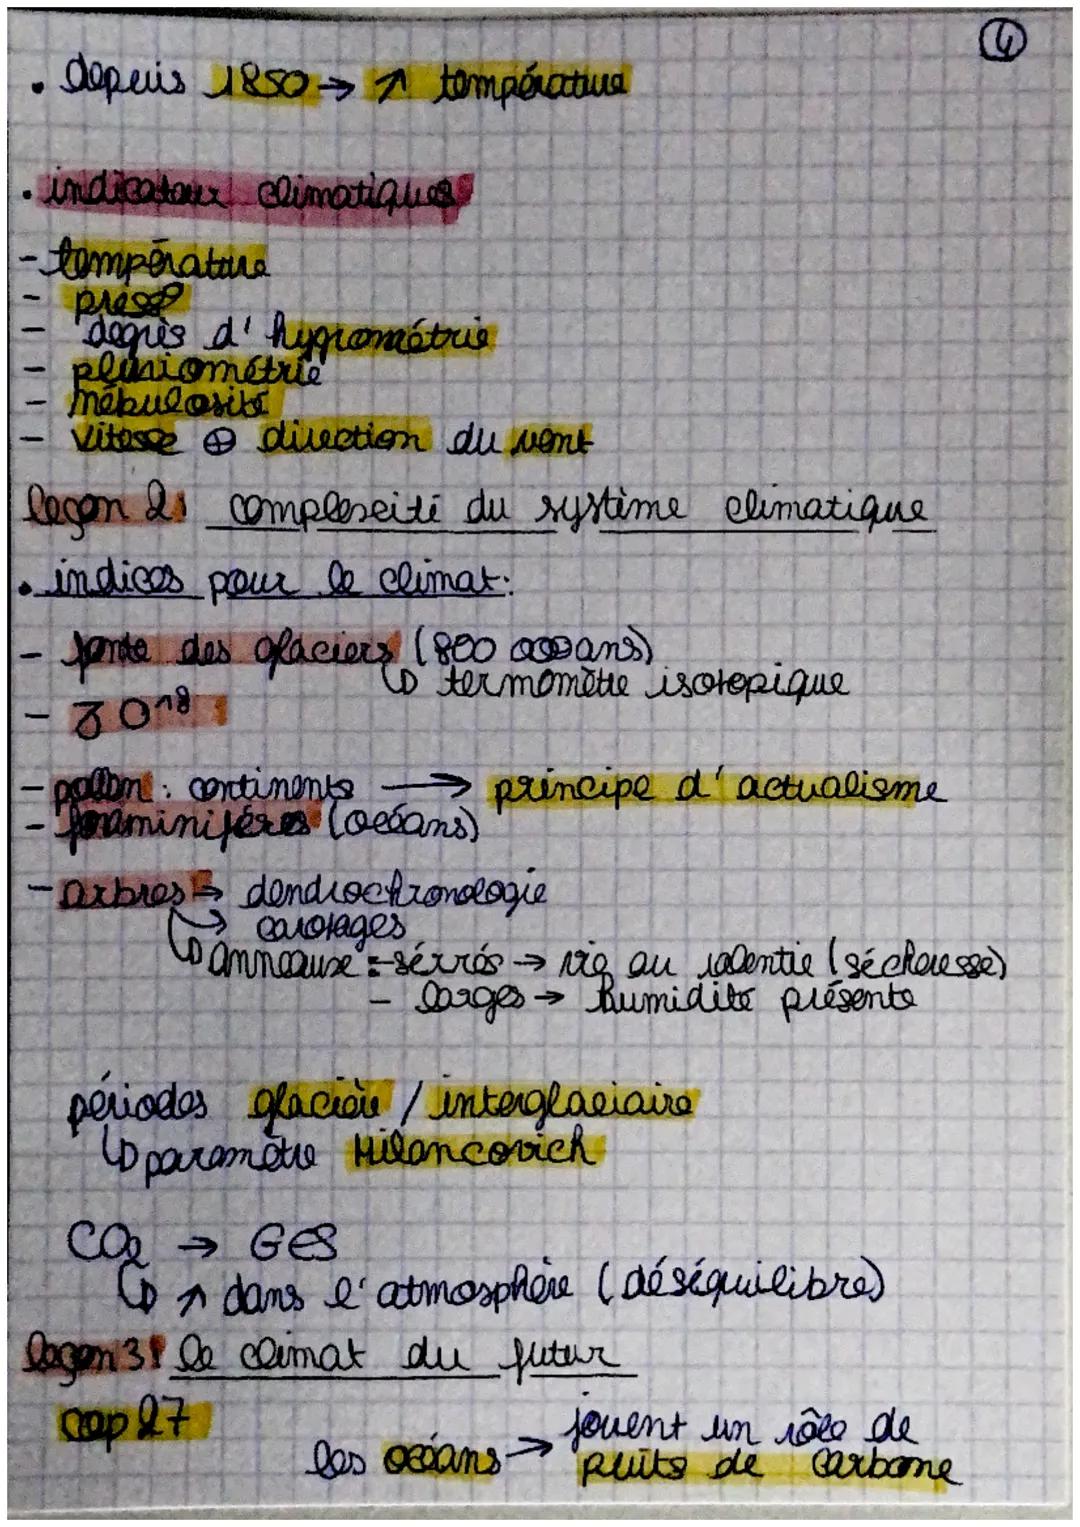 ④
• depuis 1850 → ↗ température
• indicateurs climatiques
- température
- press°
- degrès d'hygrométrie
- pluviométrie
- nébulosité
- vitesse ⊕ direction du vent
leçon 2: complexcité du système climatique
• indices pour le climat:
- fonte des glaciers (800 000 ans)
↳ termomètre isotopique
- O¹⁸
- pollen : continents → principe d'actualisme
- foraminifères (océans)
- arbres → dendrochronologie
↳ carotages
↳ anneaux : - sérrés → vie au ralentie (sécheresse)
- larges → humidité présente
périodes glacière / interglaciaire
↳ paramètre Milancovich
CO₂ → GES
↳ ↗ dans l'atmosphère (déséquilibre)
leçon 3: le climat du futur
cop 27
les océans → jouent un rôle de
puits de carbone